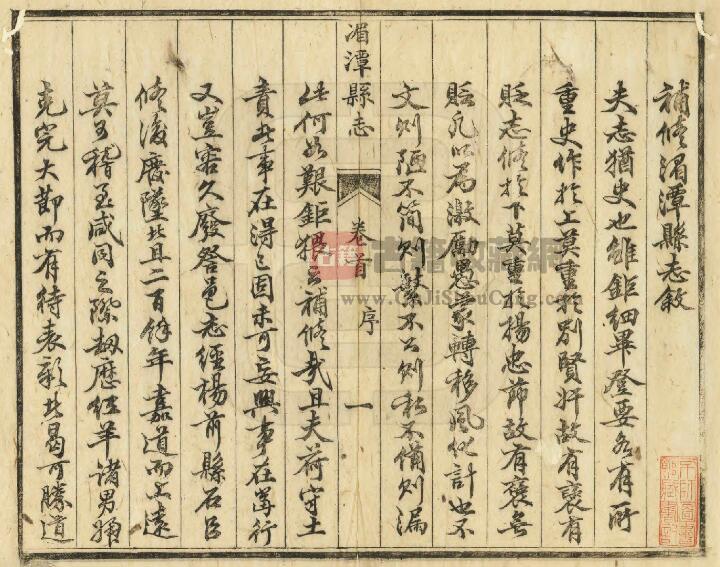 補修湄潭縣志敘
夫志猶史也雖鉅細畢登要各有所
重史作於上莫重於別賢奸故有褒有
貶志修於下莫重於揚忠節故有褒無
貶凡以為激勵愚蒙轉移風化計也不
文則陋不簡則繁不公則私不備則漏
此何如艱鉅猥云補修哉且夫荷守土
責此事在得已固未可妄興事在當行
又豈容久廢答邑志經楊前縣石臣
修後廢墜茲且二百餘年嘉道而上遠
莫可稽至咸同之際劫歷紅羊諸男婦
克完大節而有待表彰者曷可勝道
湄潭縣志
卷首
序
一
古籍收藏網
www.GuJiShouCang.com